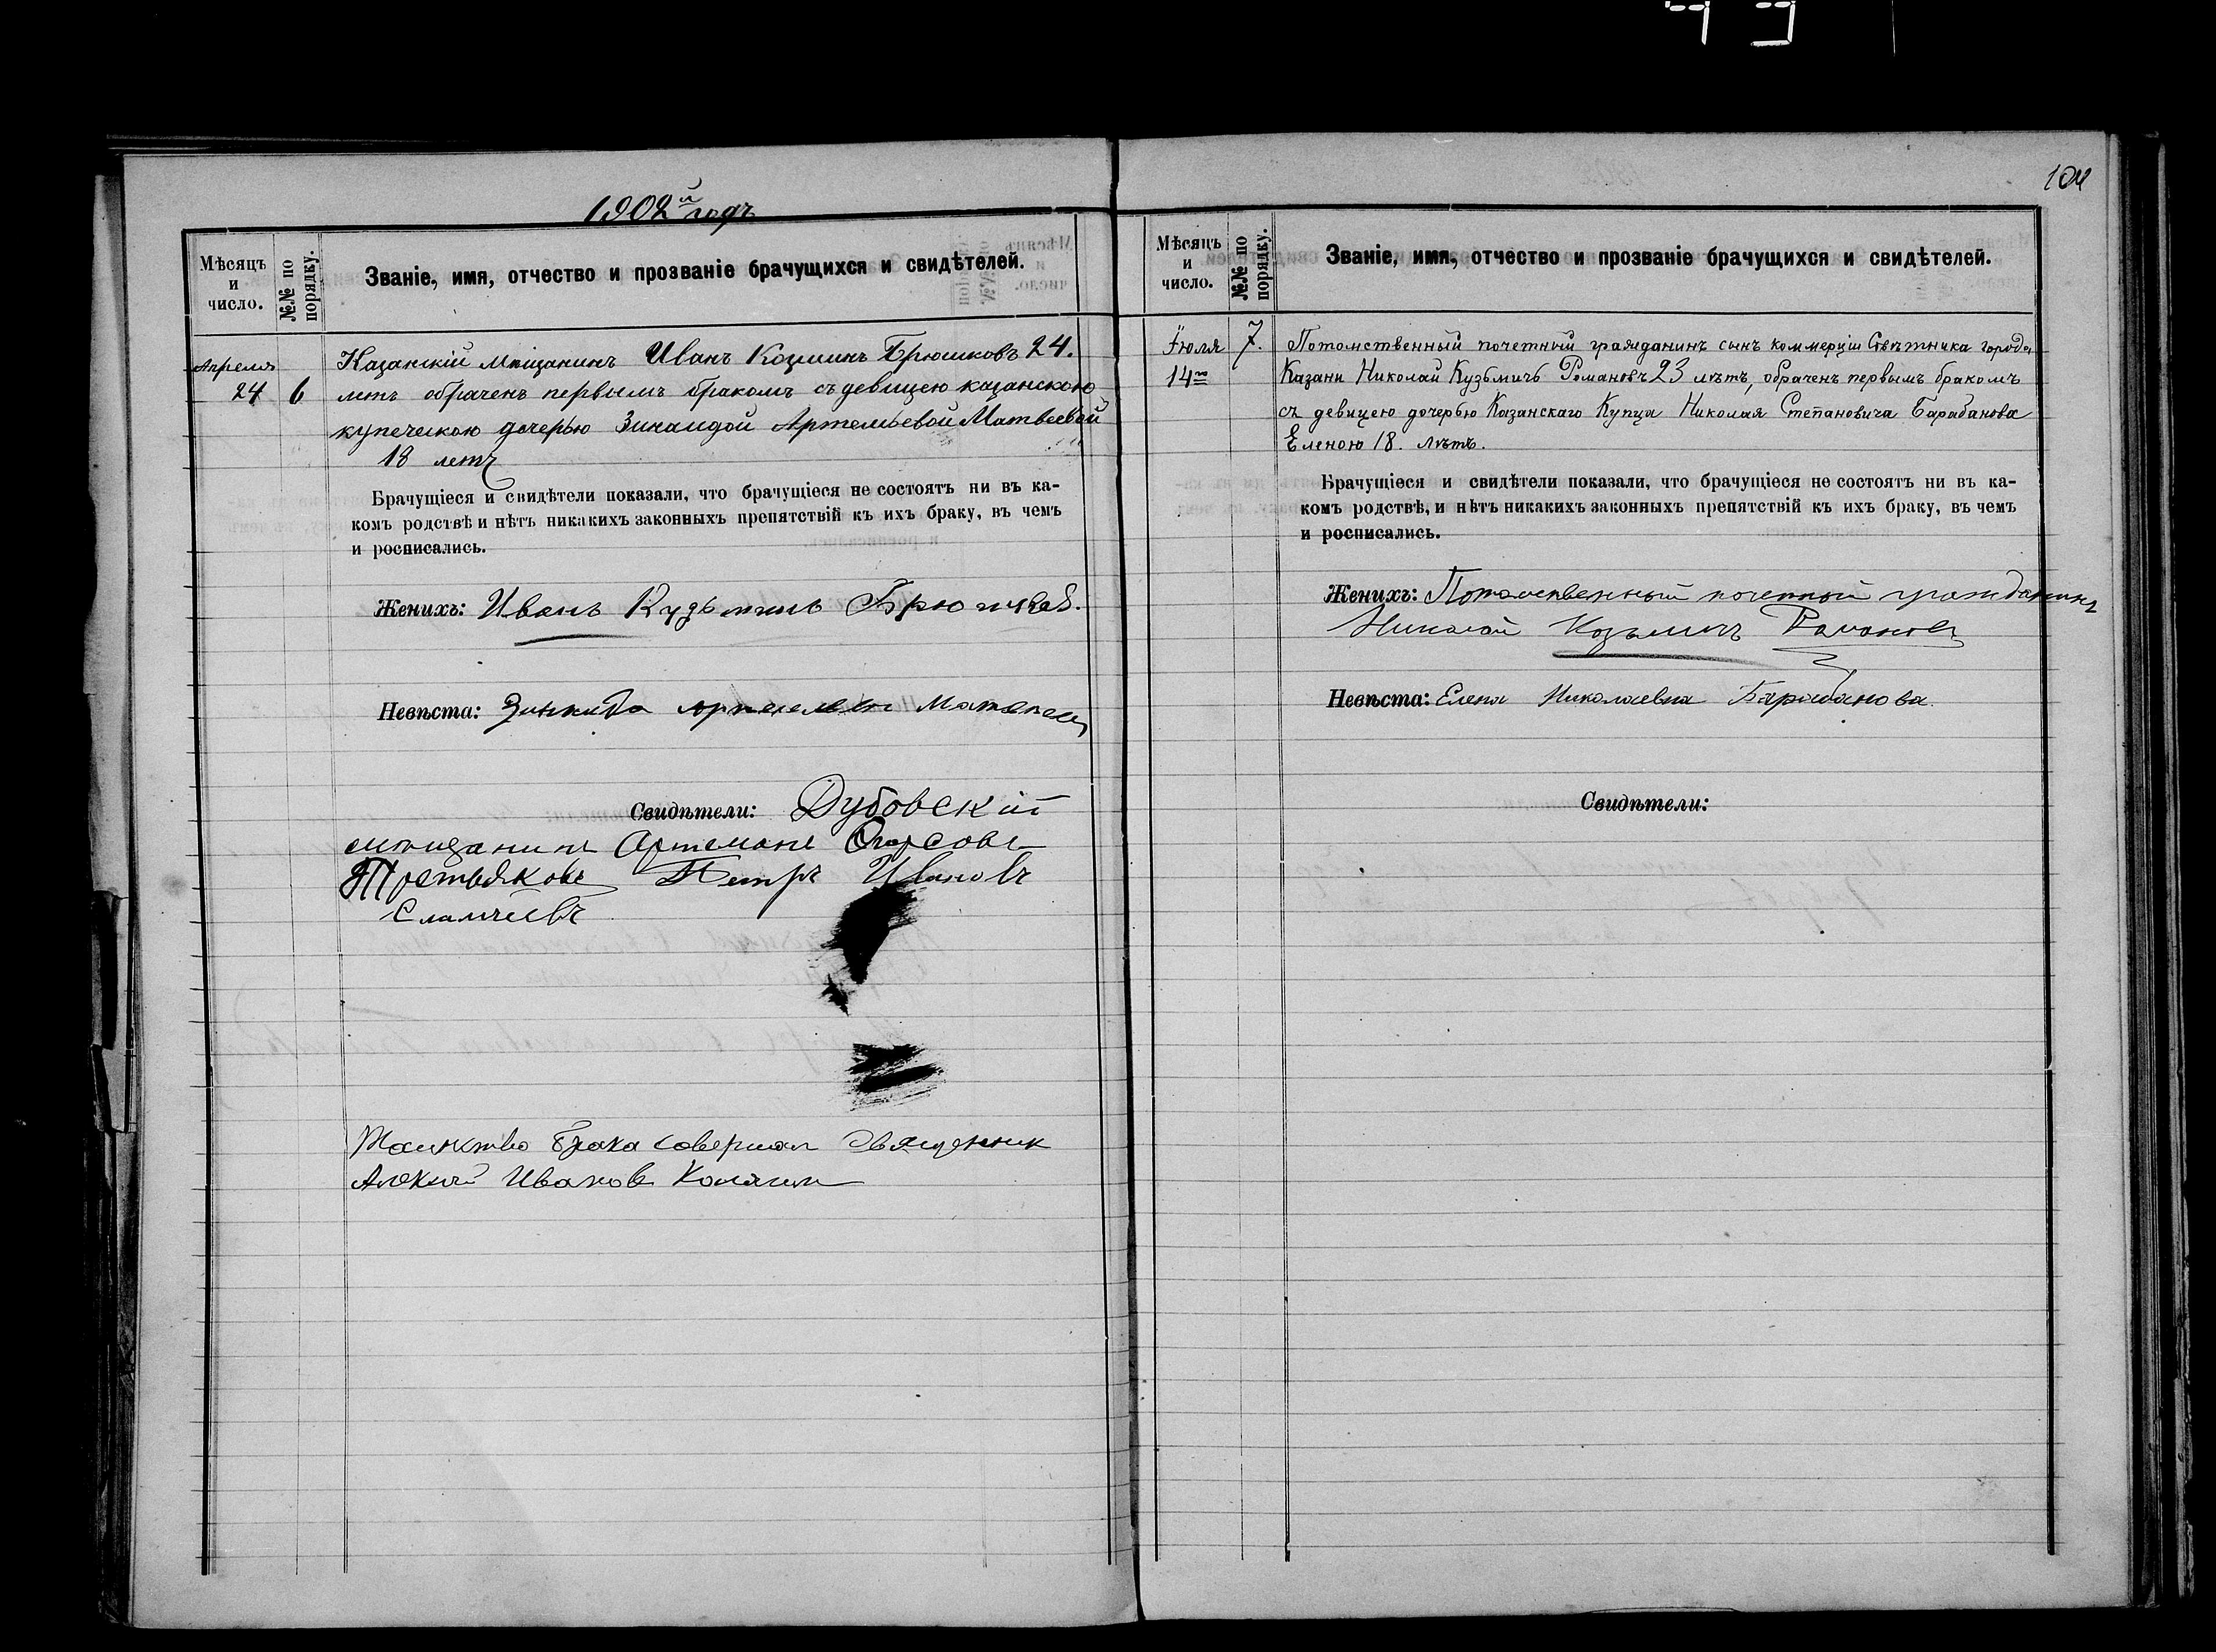 1902й годъ
Мѣсяцъ и число.
№№ по порядку.
Званіе, имя, отчество и прозваніе брачущихся и свидѣтелей.
Апреля 24
6
Казанскій мѣщанинъ Иванъ Козминъ Брюшковъ 24.
летъ обраченъ первымъ бракомъ съ девицею казанскою
купеческою дочерью Зинаидой Артемьевой Матвеевой
18 летъ
Брачущіеся и свидѣтели показали, что брачущіеся не состоятъ ни въ ка-
комъ родствѣ и нѣтъ никакихъ законныхъ препятствій къ ихъ браку, въ чемъ
и росписались.
Женихъ: Иванъ Кузьминъ Брюшковъ.
Невѣста: Зинаида
Свидѣтели: Дубовскій
мѣщанинъ Артемонъ
Третьяковъ Петръ Ивановъ
Таинство брака совершал Священник
Алексей Иванов Калягин
104
Мѣсяцъ и число.
№№ по порядку.
Званіе, имя, отчество и прозваніе брачущихся и свидѣтелей.
Іюля 14го
7.
Потомственный почетный гражданинъ сынъ коммерціи Совѣтника города
Казани Николай Кузьмичъ Романовъ 23 лѣтъ, обраченъ первымъ бракомъ
съ девицею дочерью Казанскаго Купца Николая Степановича Барабанова
Еленою 18. лѣтъ.
Брачущіеся и свидѣтели показали, что брачущіеся не состоятъ ни въ ка-
комъ родствѣ, и нѣтъ никакихъ законныхъ препятствій къ ихъ браку, въ чемъ
и росписались.
Женихъ: Потомственный почетный гражданинъ
Николай Козьмичъ Романовъ
Невѣста: Елена Николаевна Барабанова.
Свидѣтели: